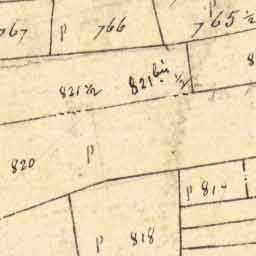 767 p 766 765 ½
821 ½ 821 bis ½ 8
820 p
p 817
p 818